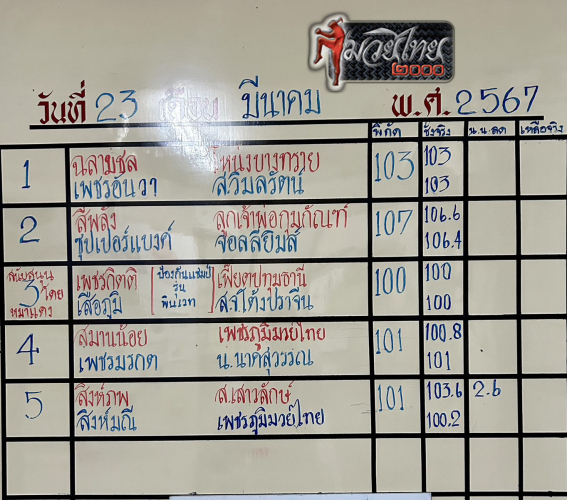 มวยไทย
๒๐๐๐
วันที่ 23 เดือน มีนาคม พ.ศ. 2567
พิกัด ชั่งจริง น.น.ลด เหลือจริง
1 ฉลามชล โหน่งบางทราย 103 103
เพชรอันวา สวิมลรัตน์ 103
2 สีพลัง ลูกเจ้าพ่อกุมภัณฑ์ 107 106.6
ซุปเปอร์แบงค์ จอลลี่ยิมส์ 106.4
สนับสนุน เพชรกิตติ ป้องกันแชมป์ เฟี้ยตปทุมธานี 100 100
3 โดย รุ่น
เสือภูมิ พินเวท ส.จ.โต้งปราจีน 100
4 สมานน้อย เพชรภูมิมวยไทย 101 100.8
เพชรมรกต น.นาคสุวรรณ 101
5 สิงห์ภพ ส.เสาวลักษ์ 101 103.6 2.6
สิงห์มณี เพชรภูมิมวยไทย 100.2